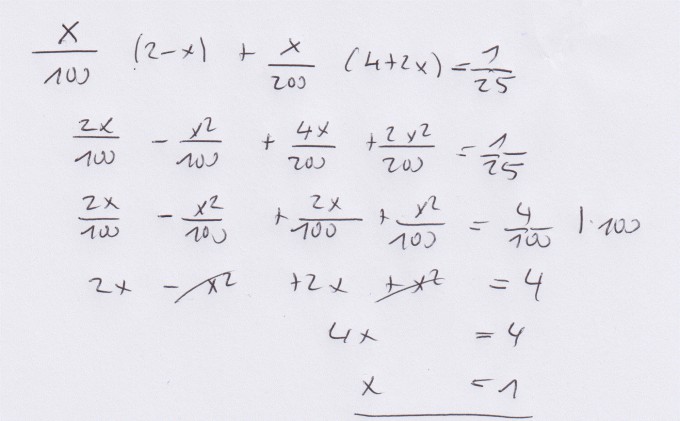 x/100 (2-x) + x/200 (4+2x) = 1/25
2x/100 - x²/100 + 4x/200 + 2x²/200 = 1/25
2x/100 - x²/100 + 2x/100 + x²/100 = 4/100 |·100
2x - x² + 2x + x² = 4
4x = 4
x = 1